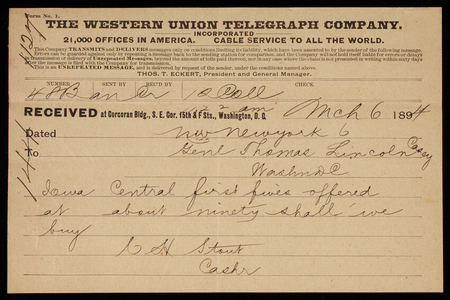 Form No. 1.
THE WESTERN UNION TELEGRAPH COMPANY.
INCORPORATED
21,000 OFFICES IN AMERICA. CABLE SERVICE TO ALL THE WORLD.
This Company TRANSMITS and DELIVERS messages only on conditions limiting its liability, which have been assented to by the sender of the following message.
Errors can be guarded against only by repeating a message back to the sending station for comparison, and the Company will not hold itself liable for errors or delays
in transmission or delivery of Unrepeated Messages, beyond the amount of tolls paid thereon, nor in any case where the claim is not presented in writing within sixty days
after the message is filed with the Company for transmission.
This is an UNREPEATED MESSAGE, and is delivered by request of the sender, under the conditions named above.
THOS. T. ECKERT, President and General Manager.
NUMBER SENT BY REC'D BY CHECK
48 Ban 10 Coll
RECEIVED at Corcoran Bldg., S. E. Cor. 15th & F Sts., Washington, D. C. Mch 6 1894
Dated New york 6
To Genl Thomas Lincoln Casey
Washn DC
Iowa Central first fives offered
at about ninety shall we
buy
C H Stout
Cashr